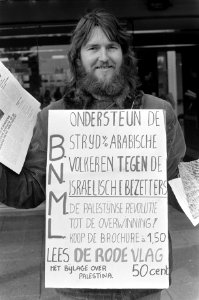 ONDERSTEUN DE
STRYD v/d ARABISCHE
VOLKEREN TEGEN DE
ISRAELISCHE BEZETTERS
DE PALESTYNSE REVOLUTIE
TOT DE OVERWINNING!
KOOP DE BROCHURE à 1,50
BNML
LEES DE RODE VLAG
MET BYLAGE OVER
PALESTINA.
50 cent